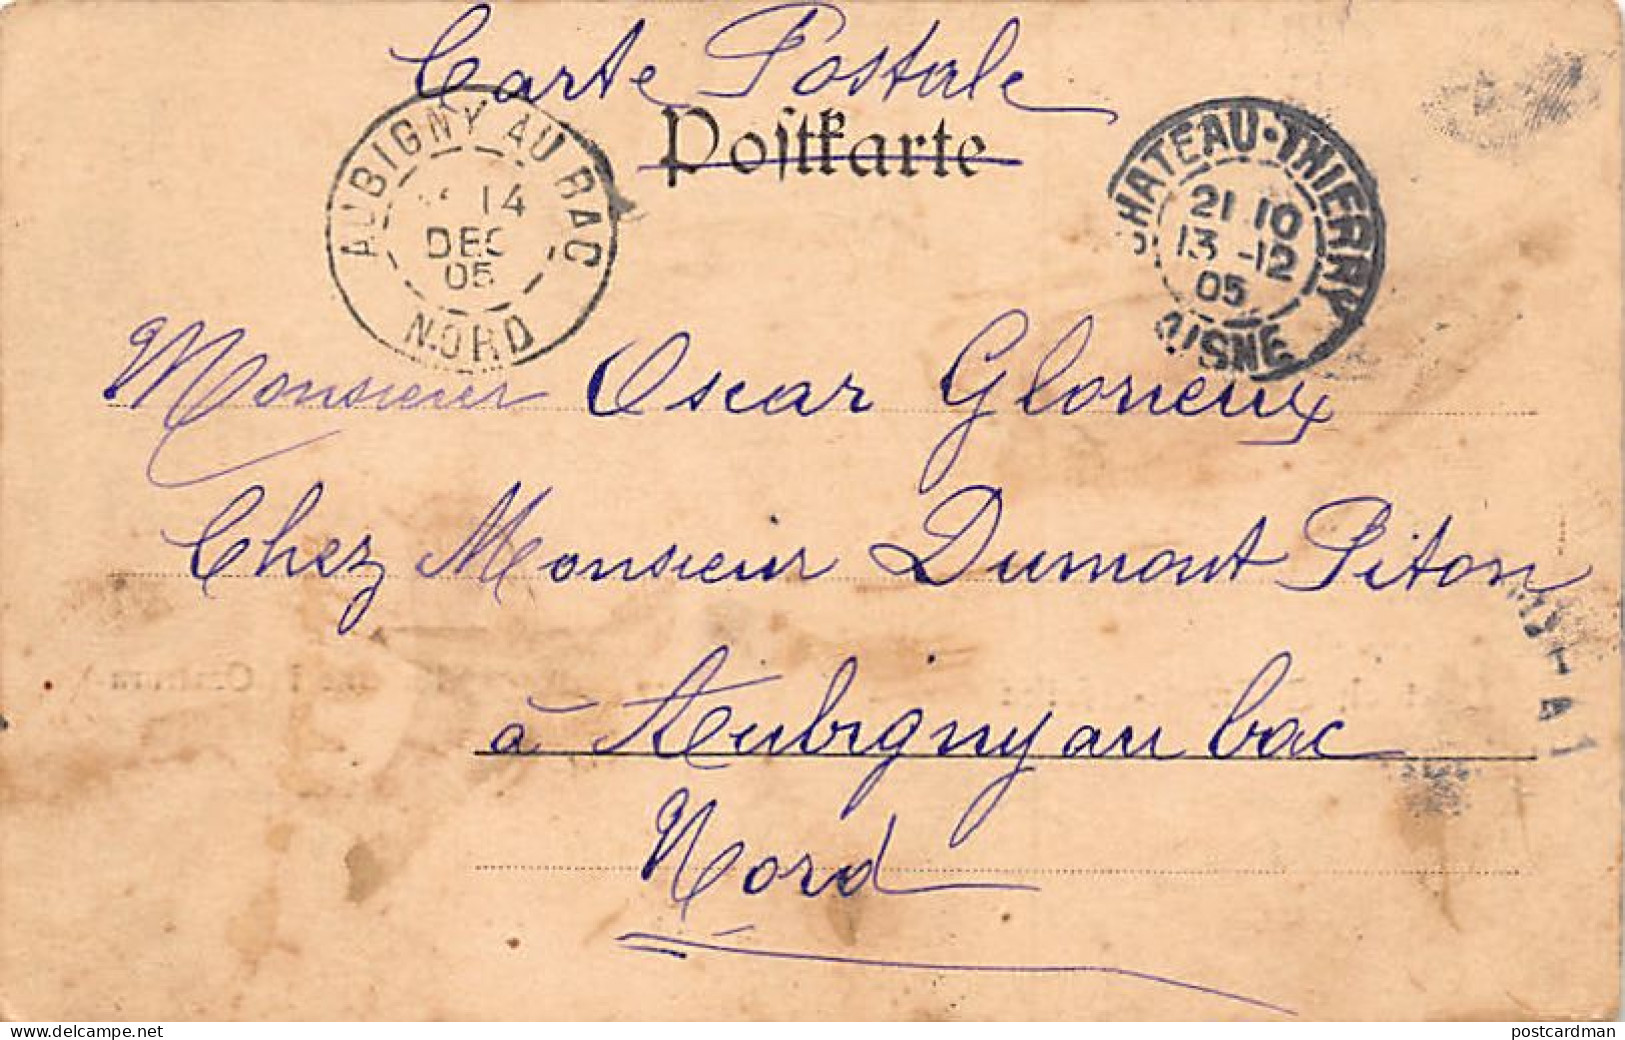 Carte Postale
Postkarte
AUBIGNY AU BAC
14
DEC
05
NORD
CHATEAU-THIERRY
21 10
13 -12
05
AISNE
Monsieur Oscar Glorieux
Chez Monsieur Dumont Piton
à Aubigny au bac
Nord
www.delcampe.net
postcardman